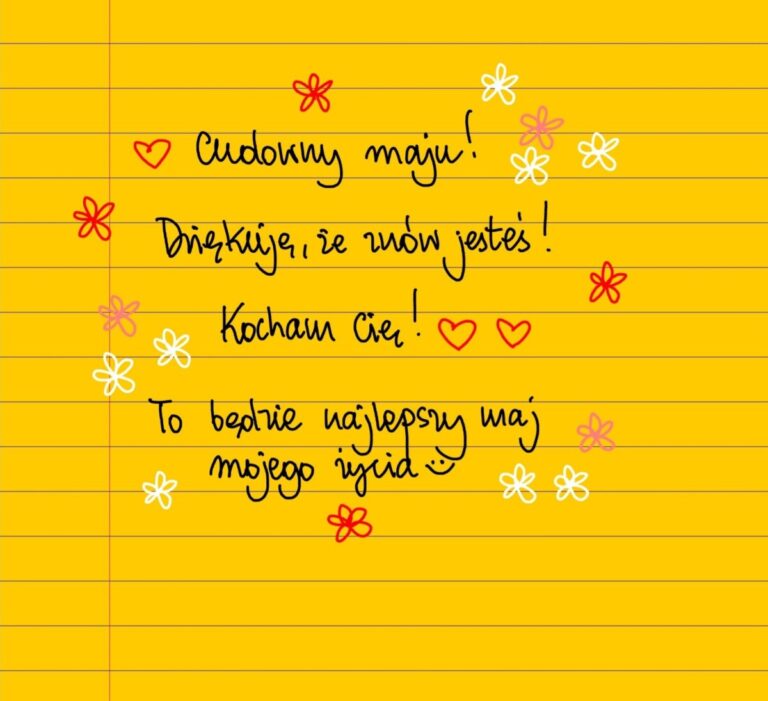 Cudowny maju!
Dziękuję, że znów jesteś!
Kocham Cię!
To będzie najlepszy maj
mojego życia